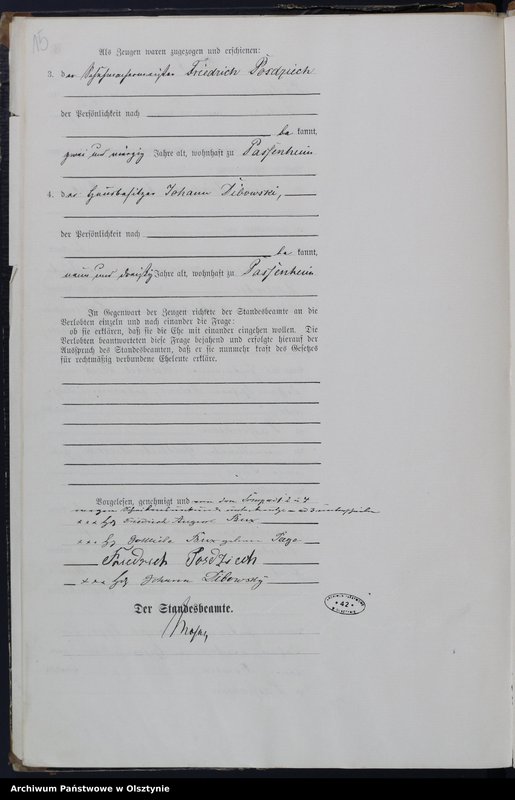 15
Als Zeugen waren zugezogen und erschienen:
3. der Schuhmachermeister Friedrich Posdziech
der Persönlichkeit nach
be kannt,
zwei und vierzig Jahre alt, wohnhaft zu Passenheim
4. der Hausbesitzer Johann Dibowski,
der Persönlichkeit nach
be kannt,
neun und dreißig Jahre alt, wohnhaft zu Passenheim
In Gegenwart der Zeugen richtete der Standesbeamte an die
Verlobten einzeln und nach einander die Frage:
ob sie erklären, daß sie die Ehe mit einander eingehen wollen. Die
Verlobten beantworteten diese Frage bejahend und erfolgte hierauf der
Ausspruch des Standesbeamten, daß er sie nunmehr kraft des Gesetzes
für rechtmäßig verbundene Eheleute erkläre.
Vorgelesen, genehmigt und von den
wegen
+++ Friedrich August
+++ Gottliebe geborene
Friedrich Posdziech
+++ Johann Dibowsky
Der Standesbeamte.
* 42 *
Archiwum Państwowe w Olsztynie